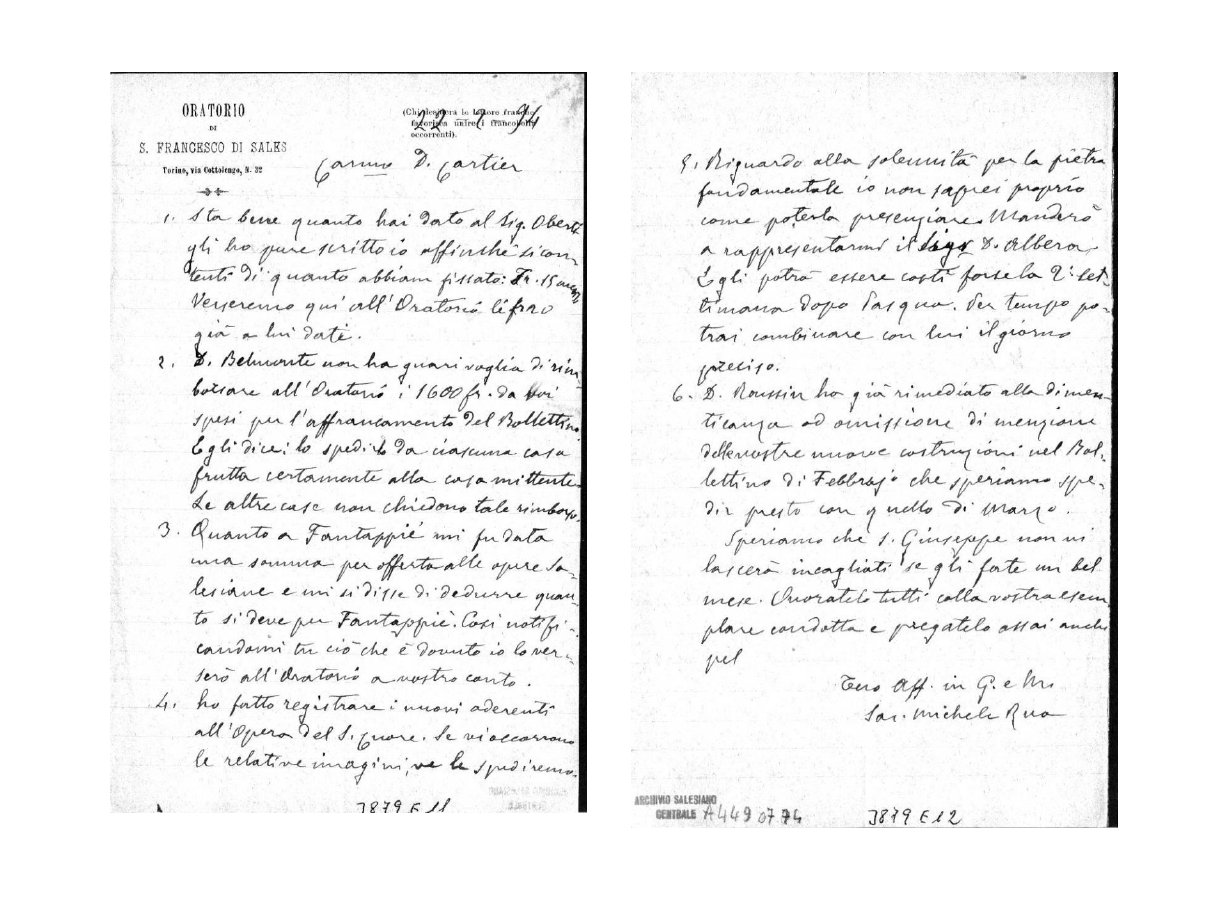 ORATORIO
DI
S. FRANCESCO DI SALES
Torino, via Cottolengo, N. 32
(Chi desidera le lettere franche
favorisca unire i francobolli
occorrenti).
22 94
Carmo D. Cartier
1. Sta bene quanto hai dato al Sig. Oberti
gli ho pure scritto io affinchè si con-
tenti di quanto abbiam fissato: Fr. 15
Verseremo qui all'Oratorio le
già a lui date.
2. D. Belmonte non ha guari voglia di rim-
borsare all'Oratorio i 1600 fr. da voi
spesi per l'affrancamento del Bollettino.
Egli dice: lo spedirlo da ciascuna casa
frutta certamente alla casa mittente.
Le altre case non chiedono tale rimborso.
3. Quanto a Fantappié mi fu data
una somma per offerta alle opere Sa-
lesiane e mi si disse di dedurre quan-
to si deve per Fantappiè. Così notifi-
candomi tu ciò che è dovuto io lo ver-
serò all'Oratorio a vostro conto.
4. ho fatto registrare i nuovi aderenti
all'Opera del S. Cuore. Se vi occorrono
le relative imagini, ve le spediremo.
J879 E 11
5. Riguardo alla solennità per la pietra
fondamentale io non saprei proprio
come poterla presenziare. Manderò
a rappresentarmi il Sigr D. Albera
Egli potrà essere costì forse la 2ª set-
timana dopo Pasqua. Per tempo po-
trai combinare con lui il giorno
preciso.
6. D. Roussin ha già rimediato alla dimen-
ticanza od omissione di menzione
delle vostre nuove costruzioni nel Bol-
lettino di Febbrajo che speriamo spe-
dir presto con quello di Marzo.
Speriamo che S. Giuseppe non vi
lascerà incagliati se gli fate un bel
mese. Onoratelo tutti colla vostra esem-
plare condotta e pregatelo assai anche
pel
Tuo Aff. in G. e M.
Sac. Michele Rua
ARCHIVIO SALESIANO
CENTRALE A449 07 74
J879 E 12